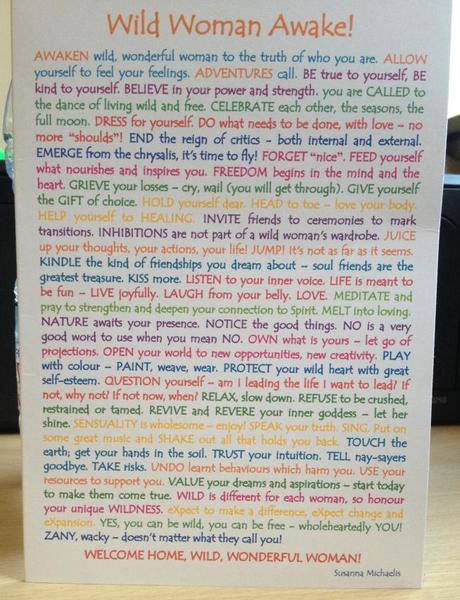 Wild Woman Awake!
AWAKEN wild, wonderful woman to the truth of who you are. ALLOW
yourself to feel your feelings. ADVENTURES call. BE true to yourself, BE
kind to yourself. BELIEVE in your power and strength. you are CALLED to
the dance of living wild and free. CELEBRATE each other, the seasons, the
full moon. DRESS for yourself. DO what needs to be done, with love – no
more "shoulds"! END the reign of critics – both internal and external.
EMERGE from the chrysalis, it's time to fly! FORGET "nice". FEED yourself
what nourishes and inspires you. FREEDOM begins in the mind and the
heart. GRIEVE your losses – cry, wail (you will get through). GIVE yourself
the GIFT of choice. HOLD yourself dear. HEAD to toe – love your body.
HELP yourself to HEALING. INVITE friends to ceremonies to mark
transitions. INHIBITIONS are not part of a wild woman's wardrobe. JUICE
up your thoughts, your actions, your life! JUMP! It's not as far as it seems.
KINDLE the kind of friendships you dream about – soul friends are the
greatest treasure. KISS more. LISTEN to your inner voice. LIFE is meant to
be fun – LIVE joyfully. LAUGH from your belly. LOVE. MEDITATE and
pray to strengthen and deepen your connection to Spirit. MELT into loving.
NATURE awaits your presence. NOTICE the good things. NO is a very
good word to use when you mean NO. OWN what is yours – let go of
projections. OPEN your world to new opportunities, new creativity. PLAY
with colour – PAINT, weave, wear. PROTECT your wild heart with great
self-esteem. QUESTION yourself – am I leading the life I want to lead? If
not, why not? If not now, when? RELAX, slow down. REFUSE to be crushed,
restrained or tamed. REVIVE and REVERE your inner goddess – let her
shine. SENSUALITY is wholesome – enjoy! SPEAK your truth. SING. Put on
some great music and SHAKE out all that holds you back. TOUCH the
earth; get your hands in the soil. TRUST your intuition. TELL nay-sayers
goodbye. TAKE risks. UNDO learnt behaviours which harm you. USE your
resources to support you. VALUE your dreams and aspirations – start today
to make them come true. WILD is different for each woman, so honour
your unique WILDNESS. eXpect to make a difference, eXpect change and
eXpansion. YES, you can be wild, you can be free – wholeheartedly YOU!
ZANY, wacky – doesn't matter what they call you!
WELCOME HOME, WILD, WONDERFUL WOMAN!
Susanna Michaelis